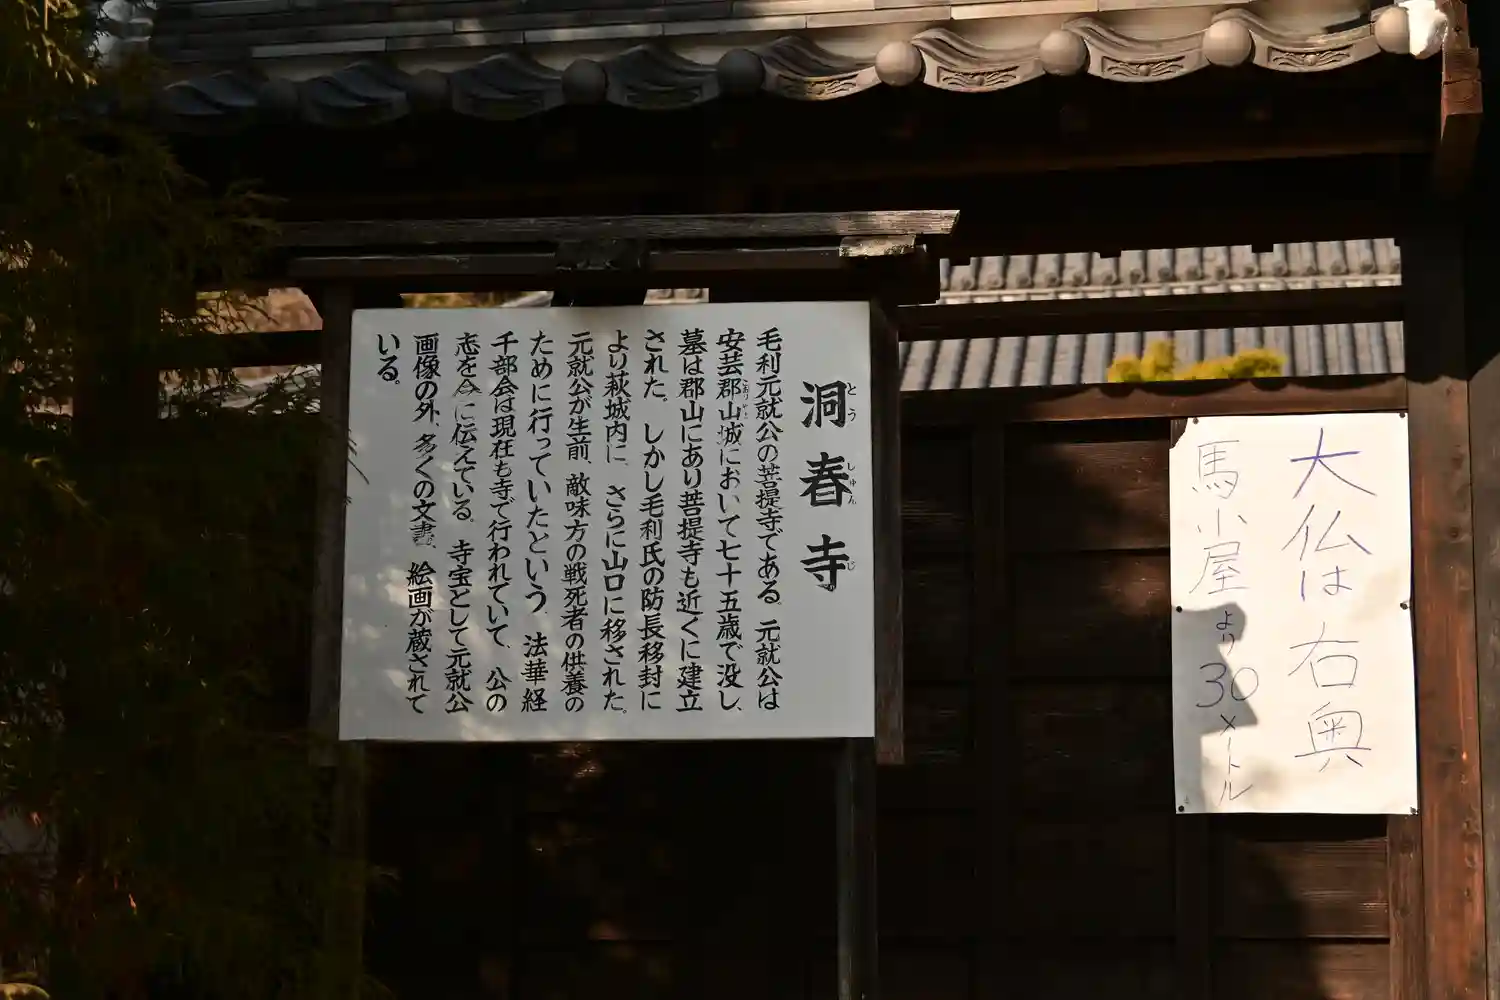 洞春寺
とうしゅんじ
毛利元就公の菩提寺である。元就公は
安芸郡山城において七十五歳で没し、
墓は郡山にあり菩提寺も近くに建立
された。しかし毛利氏の防長移封に
より萩城内に、さらに山口に移された。
元就公が生前、敵味方の戦死者の供養の
ために行っていたという、法華経
千部会は現在も寺で行われていて、公の
志を今に伝えている。寺宝として元就公
画像の外、多くの文書、絵画が蔵されて
いる。
大仏は右奥
馬小屋より30メートル